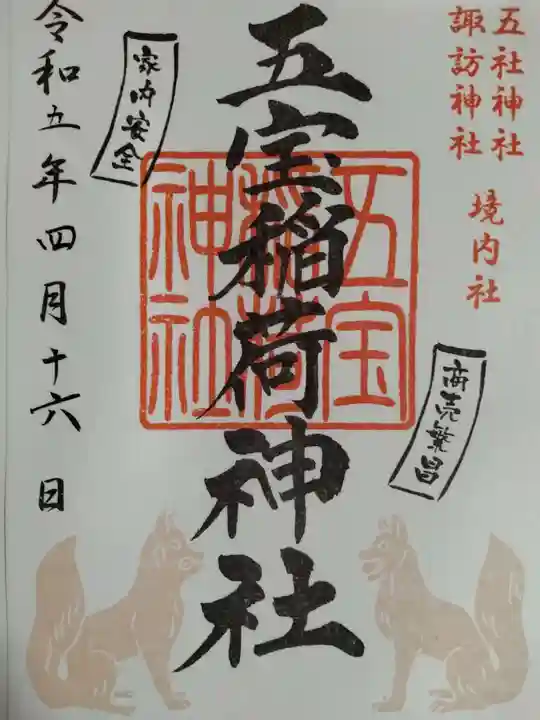 五社神社
諏訪神社
境内社
商売繁昌
五宝稲荷神社
五宝
稲荷
神社
家内安全
令和五年四月十六日